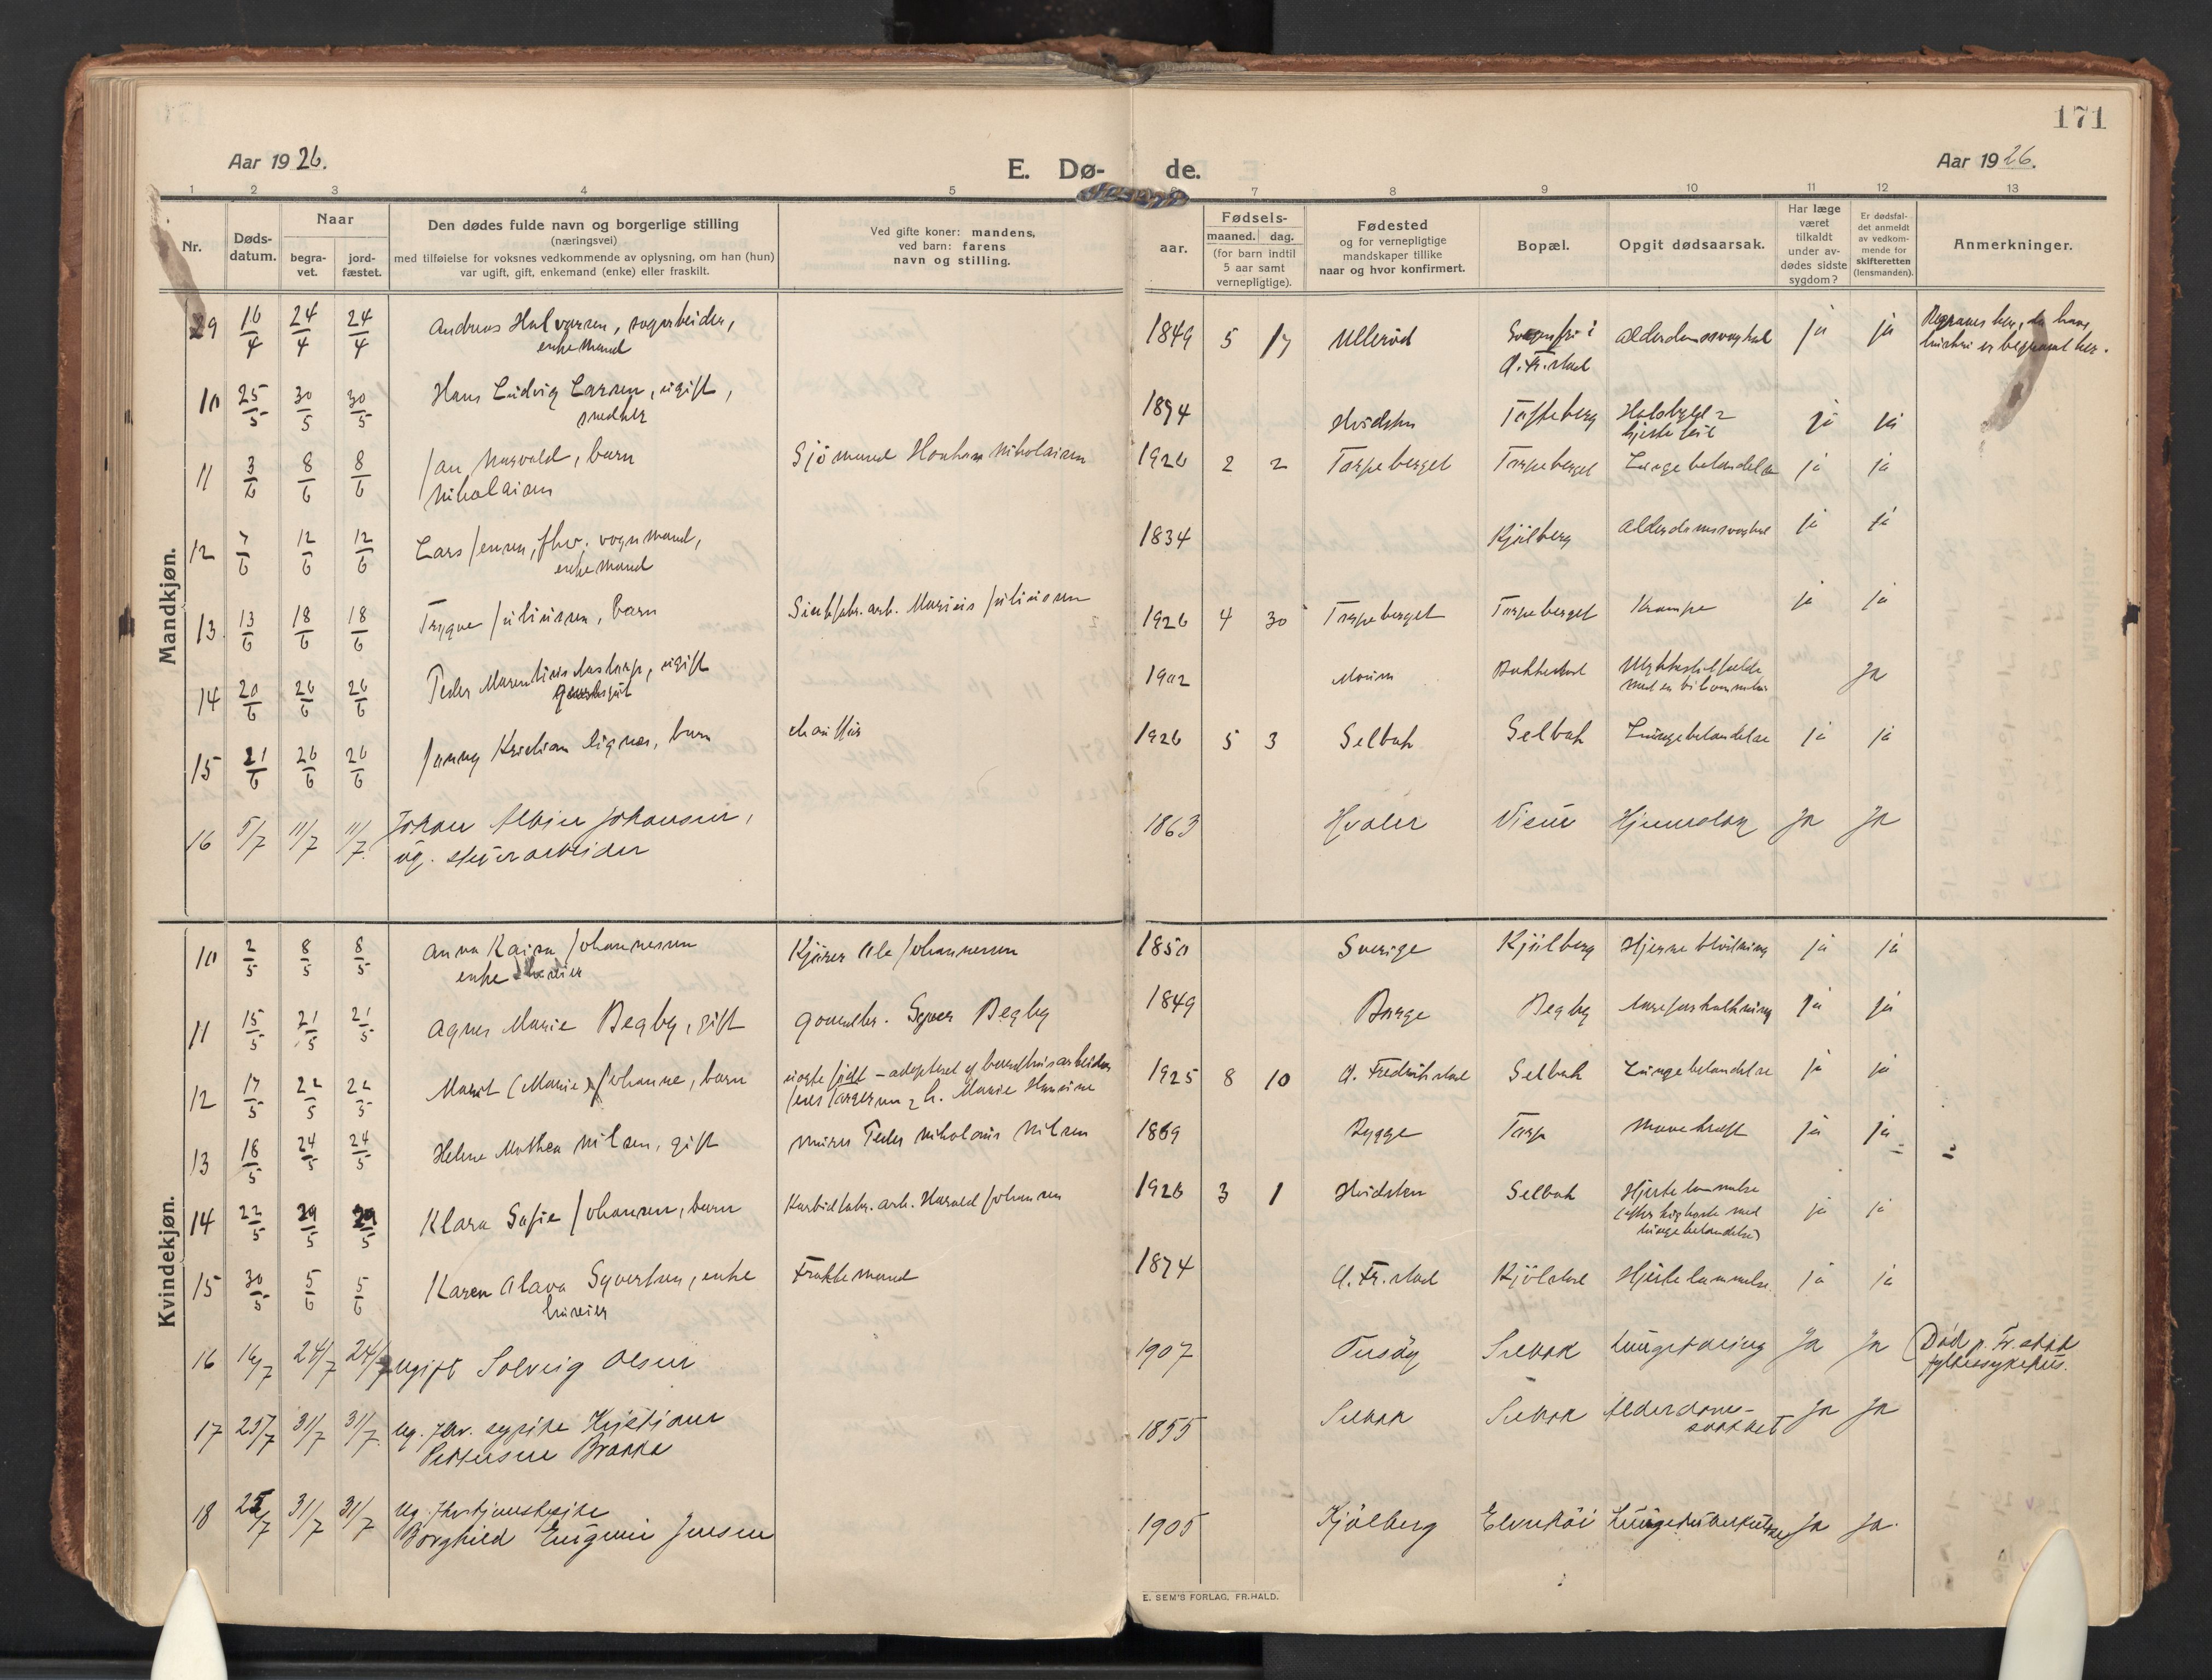 171
Aar 1926.
E. Dø- de.
Aar 1926.
1 2 3 4 5 7 8 9 10 11 12 13
Nr.
Døds-
datum.
Naar
begra-
vet.
jord-
fæstet.
Den dødes fulde navn og borgerlige stilling
(næringsvei)
med tilføielse for voksnes vedkommende av oplysning, om han (hun)
var ugift, gift, enkemand (enke) eller fraskilt.
Ved gifte koner: mandens,
ved barn: farens
navn og stilling.
Fødsels-
aar.
maaned. dag.
(for barn indtil
5 aar samt
vernepligtige).
Fødested
og for vernepligtige
mandskaper tillike
naar og hvor konfirmert.
Bopæl.
Opgit dødsaarsak.
Har læge
været
tilkaldt
under av-
dødes sidste
sygdom?
Er dødsfal-
det anmeldt
av vedkom-
mende for
skifteretten
(lensmanden).
Anmerkninger.
Mandkjøn.
9 16/4 24/4 24/4 Andreas Halvorsen, sagarbeider, 1849 5 17 Ullerød i Alderdomssvaghet ja ja
enkemand G. Fr.stad er begravet her.
10 25/5 30/5 30/5 Hans Ludvig Larsen, ugift, 1894 Hvidsten Tofteberg ja ja
snedker hjertefeil
11 3/6 8/6 8/6 Jan Norvald, barn Sjømand Nikolaisen 1926 2 2 Torpeberget Torpeberget Lungebetændelse ja ja
Nikolaisen
12 7/6 12/6 12/6 Lars Jensen, fhv. vognmand, 1834 Kjølberg Alderdomssvaghet ja ja
enkemand
13 13/6 18/6 18/6 Trygve Juliussen, barn arb. Marius Juliussen 1926 4 30 Torpeberget Torpeberget Krampe ja ja
14 20/6 26/6 26/6 Peder ugift 1902 Moum Ulykkestilfælde ja
med en bil
15 21/6 26/6 26/6 Jonny Kristian Signæs, barn chauffør 1926 5 3 Selbak Selbak Lungebetændelse ja ja
16 5/7 11/7 11/7 Johan Albin Johansen, 1863 Hvaler Viker Hjerneslag Ja Ja
ug. stenarbeider
Kvindekjøn.
10 2/5 8/5 8/5 Anna Kaisa Johannesen Kjører Ole Johannesen 1850 Sverige Kjølberg Hjerneblødning ja ja
enke
11 15/5 21/5 21/5 Agnes Marie Begby, gift gaardbr. Syver Begby 1849 Borge Begby Aareforkalkning ja ja
12 17/5 22/5 22/5 Marit (Marie) Johanne, barn – adopteret af 1925 8 10 G. Fredrikstad Selbak Lungebetændelse ja ja
h. Marie Hansine
13 18/5 24/5 24/5 Helene Mathea Nilsen, gift murer Peder Nikolais Nilsen 1869 Rygge Torp Mavekræft ja ja
14 22/5 29/5 29/5 Klara Sofie Johansen, barn Karbidfabr. arb. Harald Johansen 1926 3 1 Hvidsten Selbak Hjertelammelse
(efter kighoste med ja ja
lungebetændelse)
15 30/5 5/6 5/6 Karen Olava Syvertsen, enke Fraktemand 1874 G. Fr.stad Kjølstad Hjertelammelse. ja ja
huseier
16 16/7 24/7 24/7 ugift Solveig Olsen 1907 Torsøy Selbak Lungetæring Ja Ja (Død p. Fr.stad
fylkessykehus.
17 25/7 31/7 31/7 ug. fhv. sypike Kristiane 1855 Selbak Selbak Alderdoms- Ja Ja
Pettersen Brække svakhet
18 25/7 31/7 31/7 ug. tjenestepike
Borghild Eugenie Jensen 1905 Kjølberg Lungetuberkulose Ja Ja.
E. SEM'S FORLAG, FR.HALD.